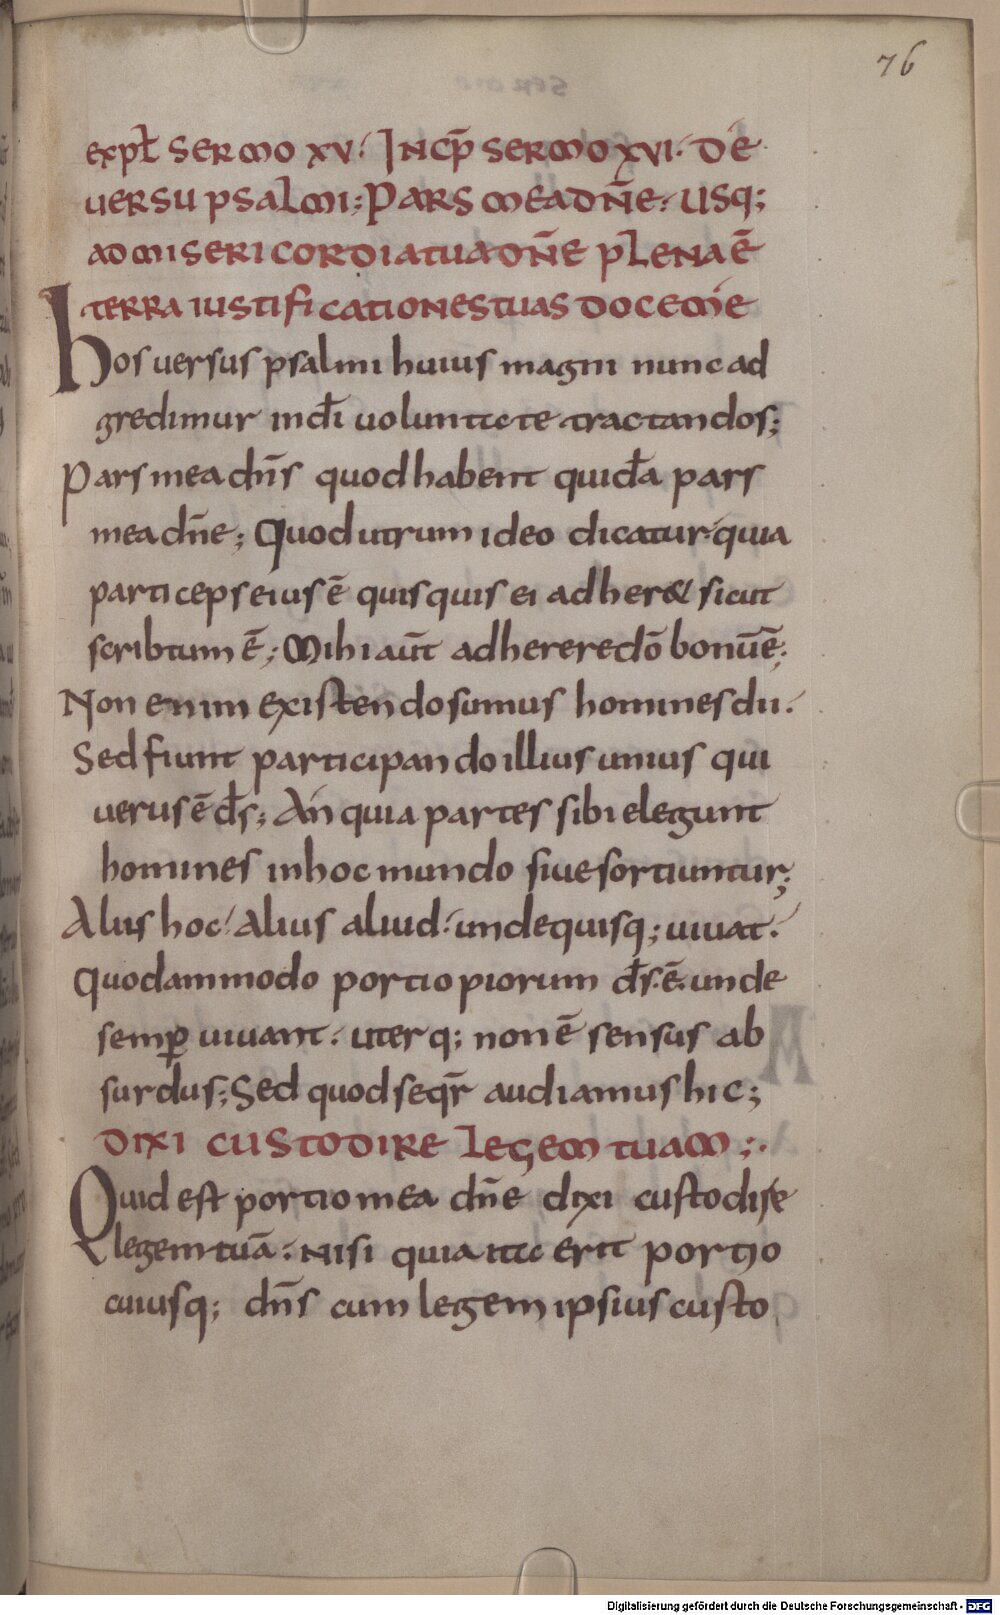 76
expł sermo xv. Incp̄ sermo xvi. De
uersu psalmi; Pars mea dn̄e. usq;
ad misericordia tua dn̄e plena ē
terra iustificationes tuas doce me
Hos uersus psalmi huius magni nunc ad
gredimur in dī uoluntate tractandos;
Pars mea dn̄s quod habent quidā pars
mea dn̄e; Quod utrum ideo dicatur. quia
particeps eius ē quisquis ei adher& sicut
scribtum ē; Mihi aūt adherere dō bonū ē;
Non enim existendo sumus homines dii.
Sed fiunt participando illius unius qui
uerus ē d̄s; An quia partes sibi elegunt
homines in hoc mundo siue sortiuntur;
Alius hoc. Alius aliud. unde quisq; uiuat.
Quodammodo portio piorum d̄s. ē. unde
semp̄ uiuant. uterq; non ē sensus ab
surdus; Sed quod seqr̄ audiamus hic;
Dixi custodire legem tuam;.
Quid est portio mea dn̄e dixi custodire
legem tuā. Nisi quia ita erit portio
cuiusq; dn̄s cum legem ipsius custo
Digitalisierung gefördert durch die Deutsche Forschungsgemeinschaft - DFG